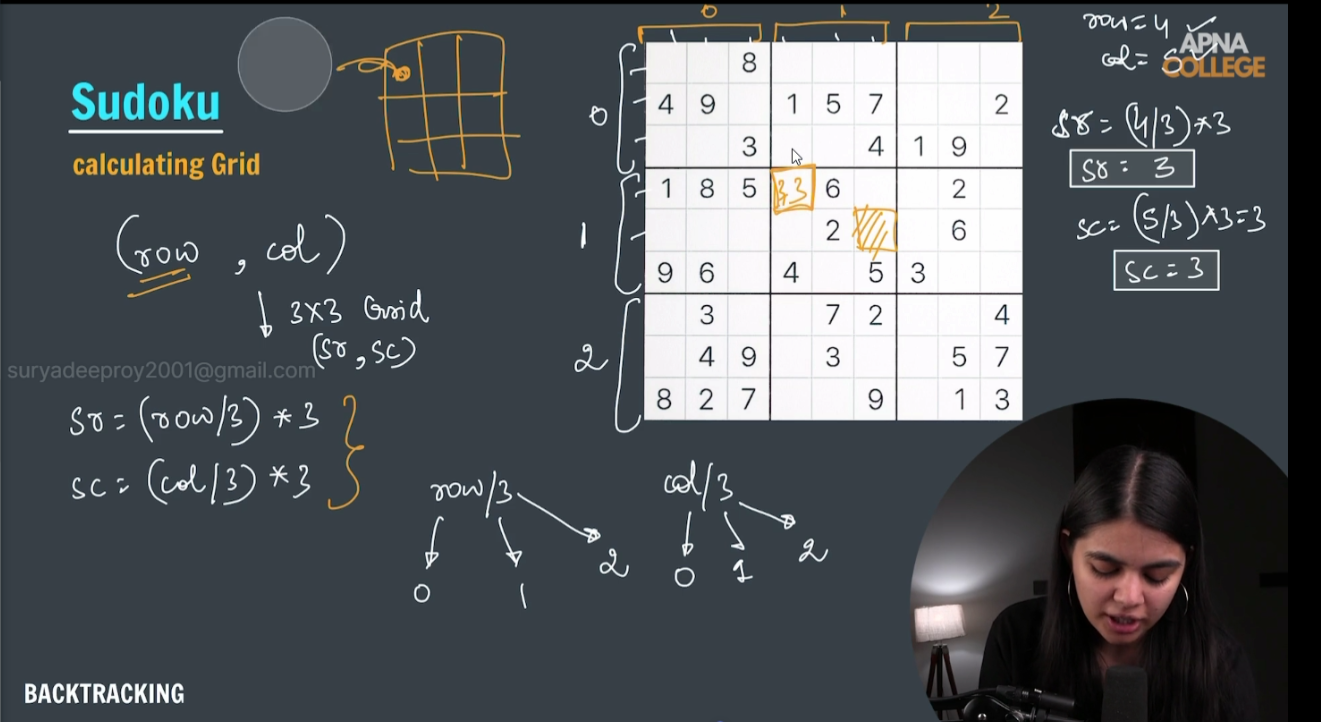 Sudoku
calculating Grid
(row, col)
↓ 3x3 Grid
(sr, sc)
suryadeeproy2001@gmail.com
sr = (row/3) * 3
sc = (col/3) * 3
row/3
0 1 2
col/3
0 1 2
0 1 2
0
1
2
8
4 9 1 5 7 2
3 4 1 9
1 8 5 3,3 6 2
2 6
9 6 4 5 3
3 7 2 4
4 9 3 5 7
8 2 7 9 1 3
row = 4
col = 5
APNA
COLLEGE
sr = (4/3)*3
sr = 3
sc = (5/3)*3=3
sc = 3
BACKTRACKING